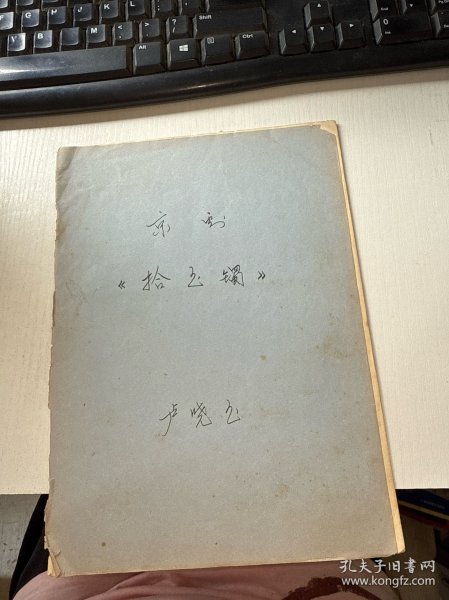 京剧
《拾玉镯》
卢晓玉
孔夫子旧书网
www.kongfz.com